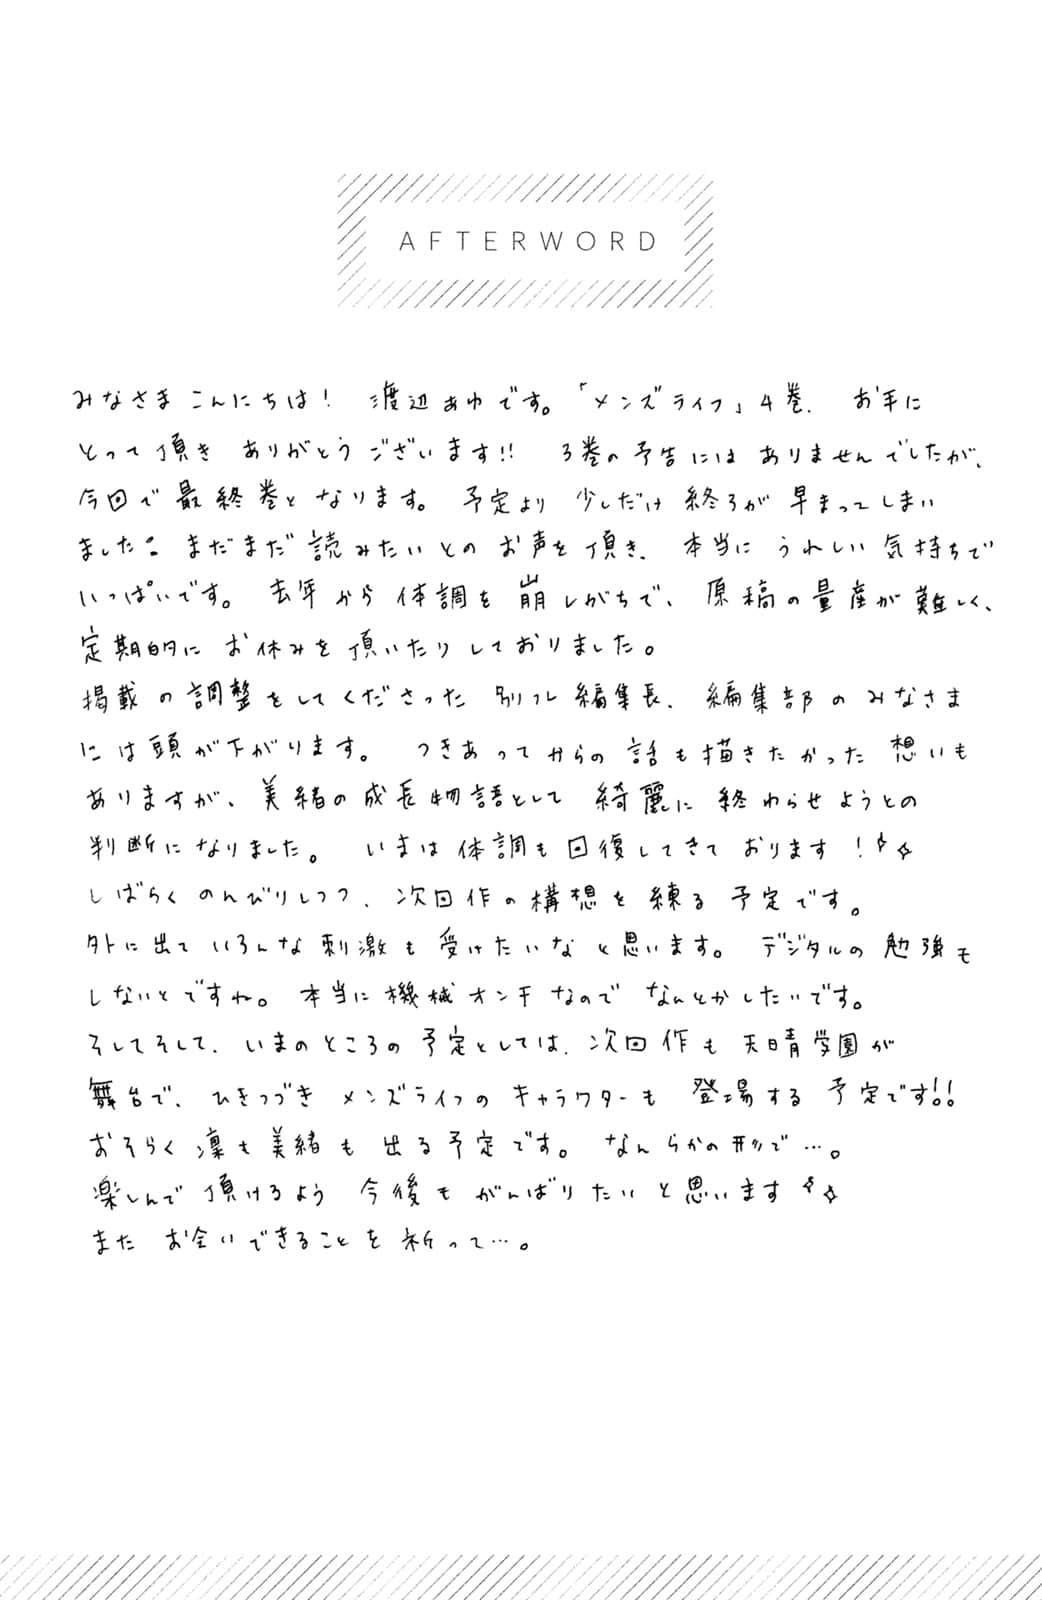 AFTERWORD
みなさま こんにちは! 渡辺あゆです。「メンズライフ」4巻、お手に
とって頂き ありがとうございます!! 3巻の予告には ありませんでしたが、
今回で 最終巻と なります。 予定より 少しだけ 終りが 早まってしまい
ました。 まだまだ 読みたいとの お声を 頂き、 本当に うれしい 気持ちで
いっぱいです。 去年から 体調を 崩しがちで、 原稿の 量産が 難しく、
定期的に お休みを 頂いたり しておりました。
掲載の 調整を してくださった 別フレ 編集長、 編集部の みなさま
には 頭が 下がります。 つきあってからの 話も 描きたかった 想いも
ありますが、 美緒の 成長物語として 綺麗に 終わらせようとの
判断に なりました。 いまは 体調も 回復してきて おります!
しばらく のんびりしつつ、 次回作の 構想を 練る 予定です。
外に出て いろんな 刺激も 受けたいな と思います。 デジタルの 勉強も
しないとですね。 本当に 機械オンチなので なんとかしたいです。
そしてそして、 いまのところの 予定としては、 次回作も 天晴学園が
舞台で、 ひきつづき メンズライフの キャラクターも 登場する 予定です!!
おそらく 凜も 美緒も 出る 予定です。 なんらかの形で…。
楽しんで 頂けるよう 今後も がんばりたい と思います
また お会いできることを 祈って…。